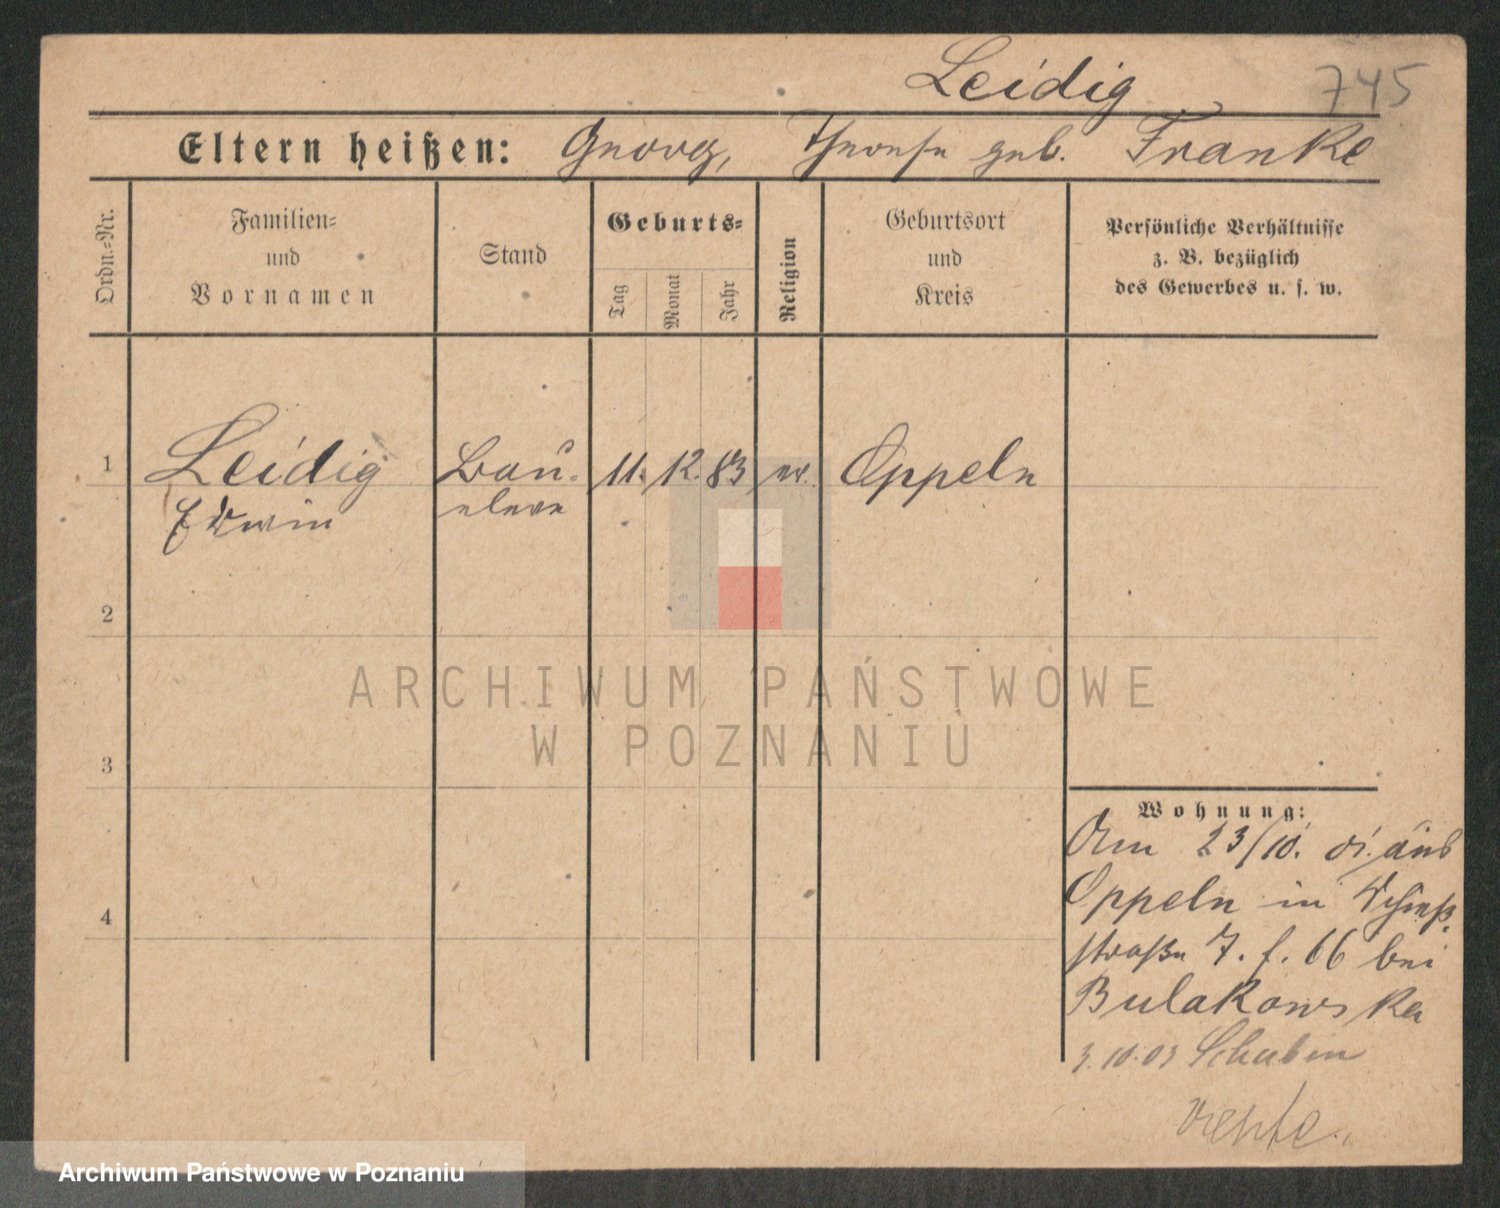 Leidig 745
Eltern heißen: Georg, Therese geb. Franke
Ordn.-Nr.
Familien-
und
Vornamen
Stand
Geburts-
Tag
Monat
Jahr
Religion
Geburtsort
und
Kreis
Persönliche Verhältnisse
z. B. bezüglich
des Gewerbes u. s. w.
1 Leidig Bau- 11. 12. 83 ev. Oppeln
Edwin eleve
2
ARCHIWUM PAŃSTWOWE
W POZNANIU
3
4
Wohnung:
Am 23/10. 01. aus
Oppeln in Schieß-
straße 7. f. 66 bei
Bulakowska
3.10.03 Schubin
Archiwum Państwowe w Poznaniu